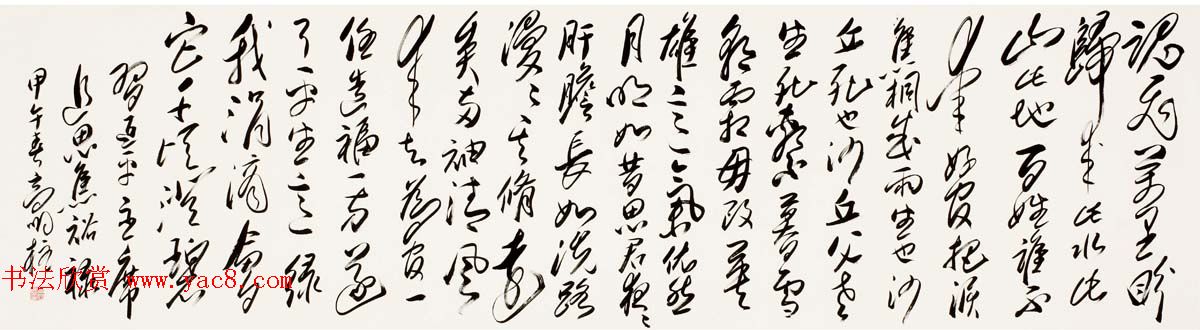 魂飛萬里盼
歸来此水此
山此地百姓誰不
愛好官把淚
焦桐成雨生也沙
丘死也沙丘父老
生死系暮雪
朝霜毋改英
雄意氣依然
月明如昔思君夜〻
肝膽長如洗路
漫〻其脩遠
矣兩袖清風
来去為官一
任造福一方遂
了平生意綠
我涓滴會
它千頃澄碧
習近平主席
追思焦裕禄
甲午春高明
书法欣赏 www.yac8.com